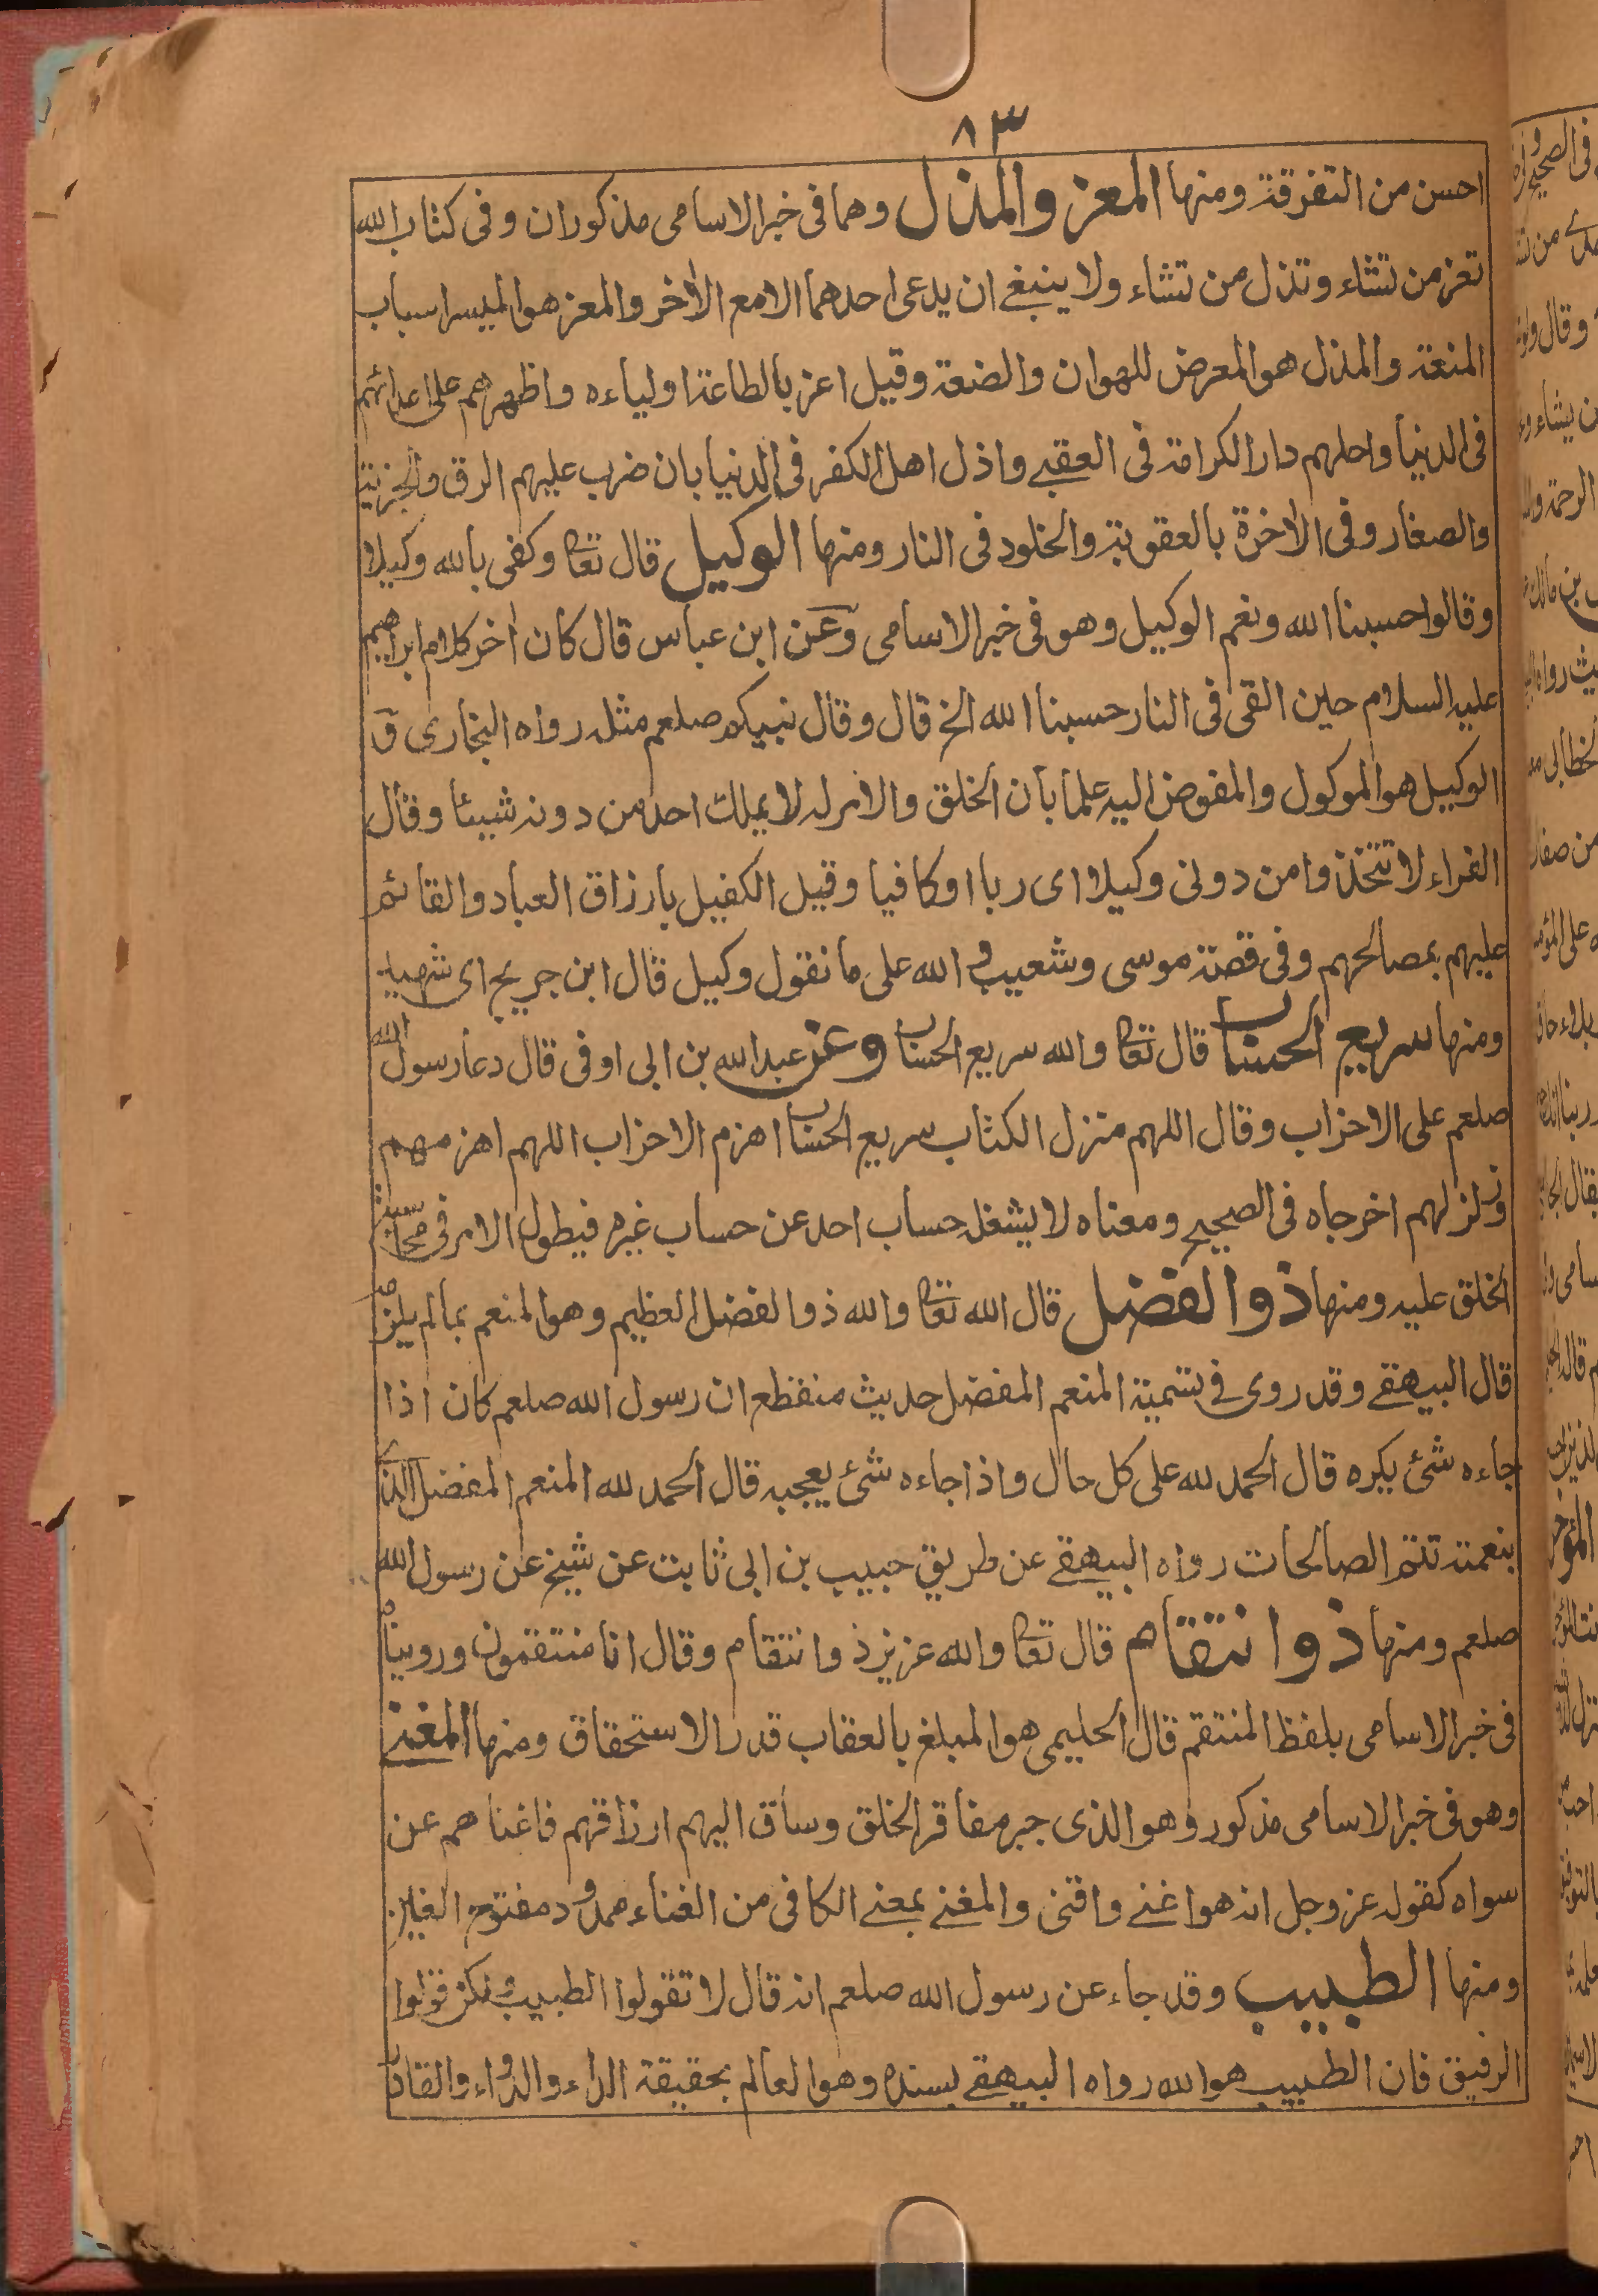 ٨٣
احسن من التفرقة ومنها المعز والمذل وهما فى خبر الاسامى مذكوران وفى كتاب الله
تعز من تشاء وتذل من تشاء ولا ينبغے ان يدعى احدهما الا مع الاٰخر والمعز هو الميسر اسباب
المنعة والمذل هو المعرض للهوان والضعة وقيل اعز بالطاعة اولياءه واظهرهم على اعدائهم
فى الدنيا واحلهم دار الكرامة فى العقبے واذل اهل الكفر فى الدنيا بان ضرب عليهم الرق والجزية
والصغار وفى الاٰخرة بالعقوبة والخلود فى النار ومنها الوكيل قال تعا وكفى بالله وكيلا
وقالوا حسبنا الله ونعم الوكيل وهو فى خبر الاسامى وعن ابن عباس قال كان اٰخر كلام ابراهيم
عليه السلام حين القى فى النار حسبنا الله الخ قال وقال نبيكم صلعم مثله رواه البخارى و
الوكيل هو الموكول والمفوض اليه علما بان الخلق والامر له لا يملك احد من دونه شيئا وقال
الفراء لا تتخذوا من دونى وكيلا اى ربا او كافيا وقيل الكفيل بارزاق العباد والقائم
عليهم بمصالحهم وفى قصة موسى وشعيب و الله على ما نقول وكيل قال ابن جريج اى شهيد
ومنها سريع الحساب قال تعا والله سريع الحساب وعن عبد الله بن ابى اوفى قال دعا رسول الله
صلعم على الاحزاب وقال اللهم منزل الكتاب سريع الحساب اهزم الاحزاب اللهم اهزمهم
وزلزلهم اخرجاه فى الصحيح ومعناه لا يشغله حساب احد عن حساب غيره فيطول الامر فى محاسبة
الخلق عليه ومنها ذو الفضل قال الله تعا والله ذو الفضل العظيم وهو المنعم بما لم يلزمه
قال البيهقے وقد روى فے تسمية المنعم المفضل حديث منقطع ان رسول الله صلعم كان اذا
جاءه شئ يكره قال الحمد لله على كل حال واذا جاءه شئ يعجبه قال الحمد لله المنعم المفضل الذے
بنعمته تتم الصالحات رواه البيهقے عن طريق حبيب بن ابى ثابت عن شيخ عن رسول الله
صلعم ومنها ذو انتقام قال تعا والله عزيز ذو انتقام وقال انا منتقمون ورويناه
فى خبر الاسامى بلفظ المنتقم قال الحليمى هو المبلغ بالعقاب قدر الاستحقاق ومنها المغنے
وهو فى خبر الاسامى مذكور وهو الذى جبر مفاقر الخلق وساق اليهم ارزاقهم فاغناهم عن
سواه كقوله عز وجل انه هو اغنے واقنى والمغنے بمعنے الكافى من الغناء ممدود مفتوح الغين
ومنها الطبيب وقد جاء عن رسول الله صلعم انه قال لا تقولوا الطبيب ولكن قولوا
الرفيق فان الطبيب هو الله رواه البيهقے بسنده وهو العالم بحقيقة الداء والدواء والقادر